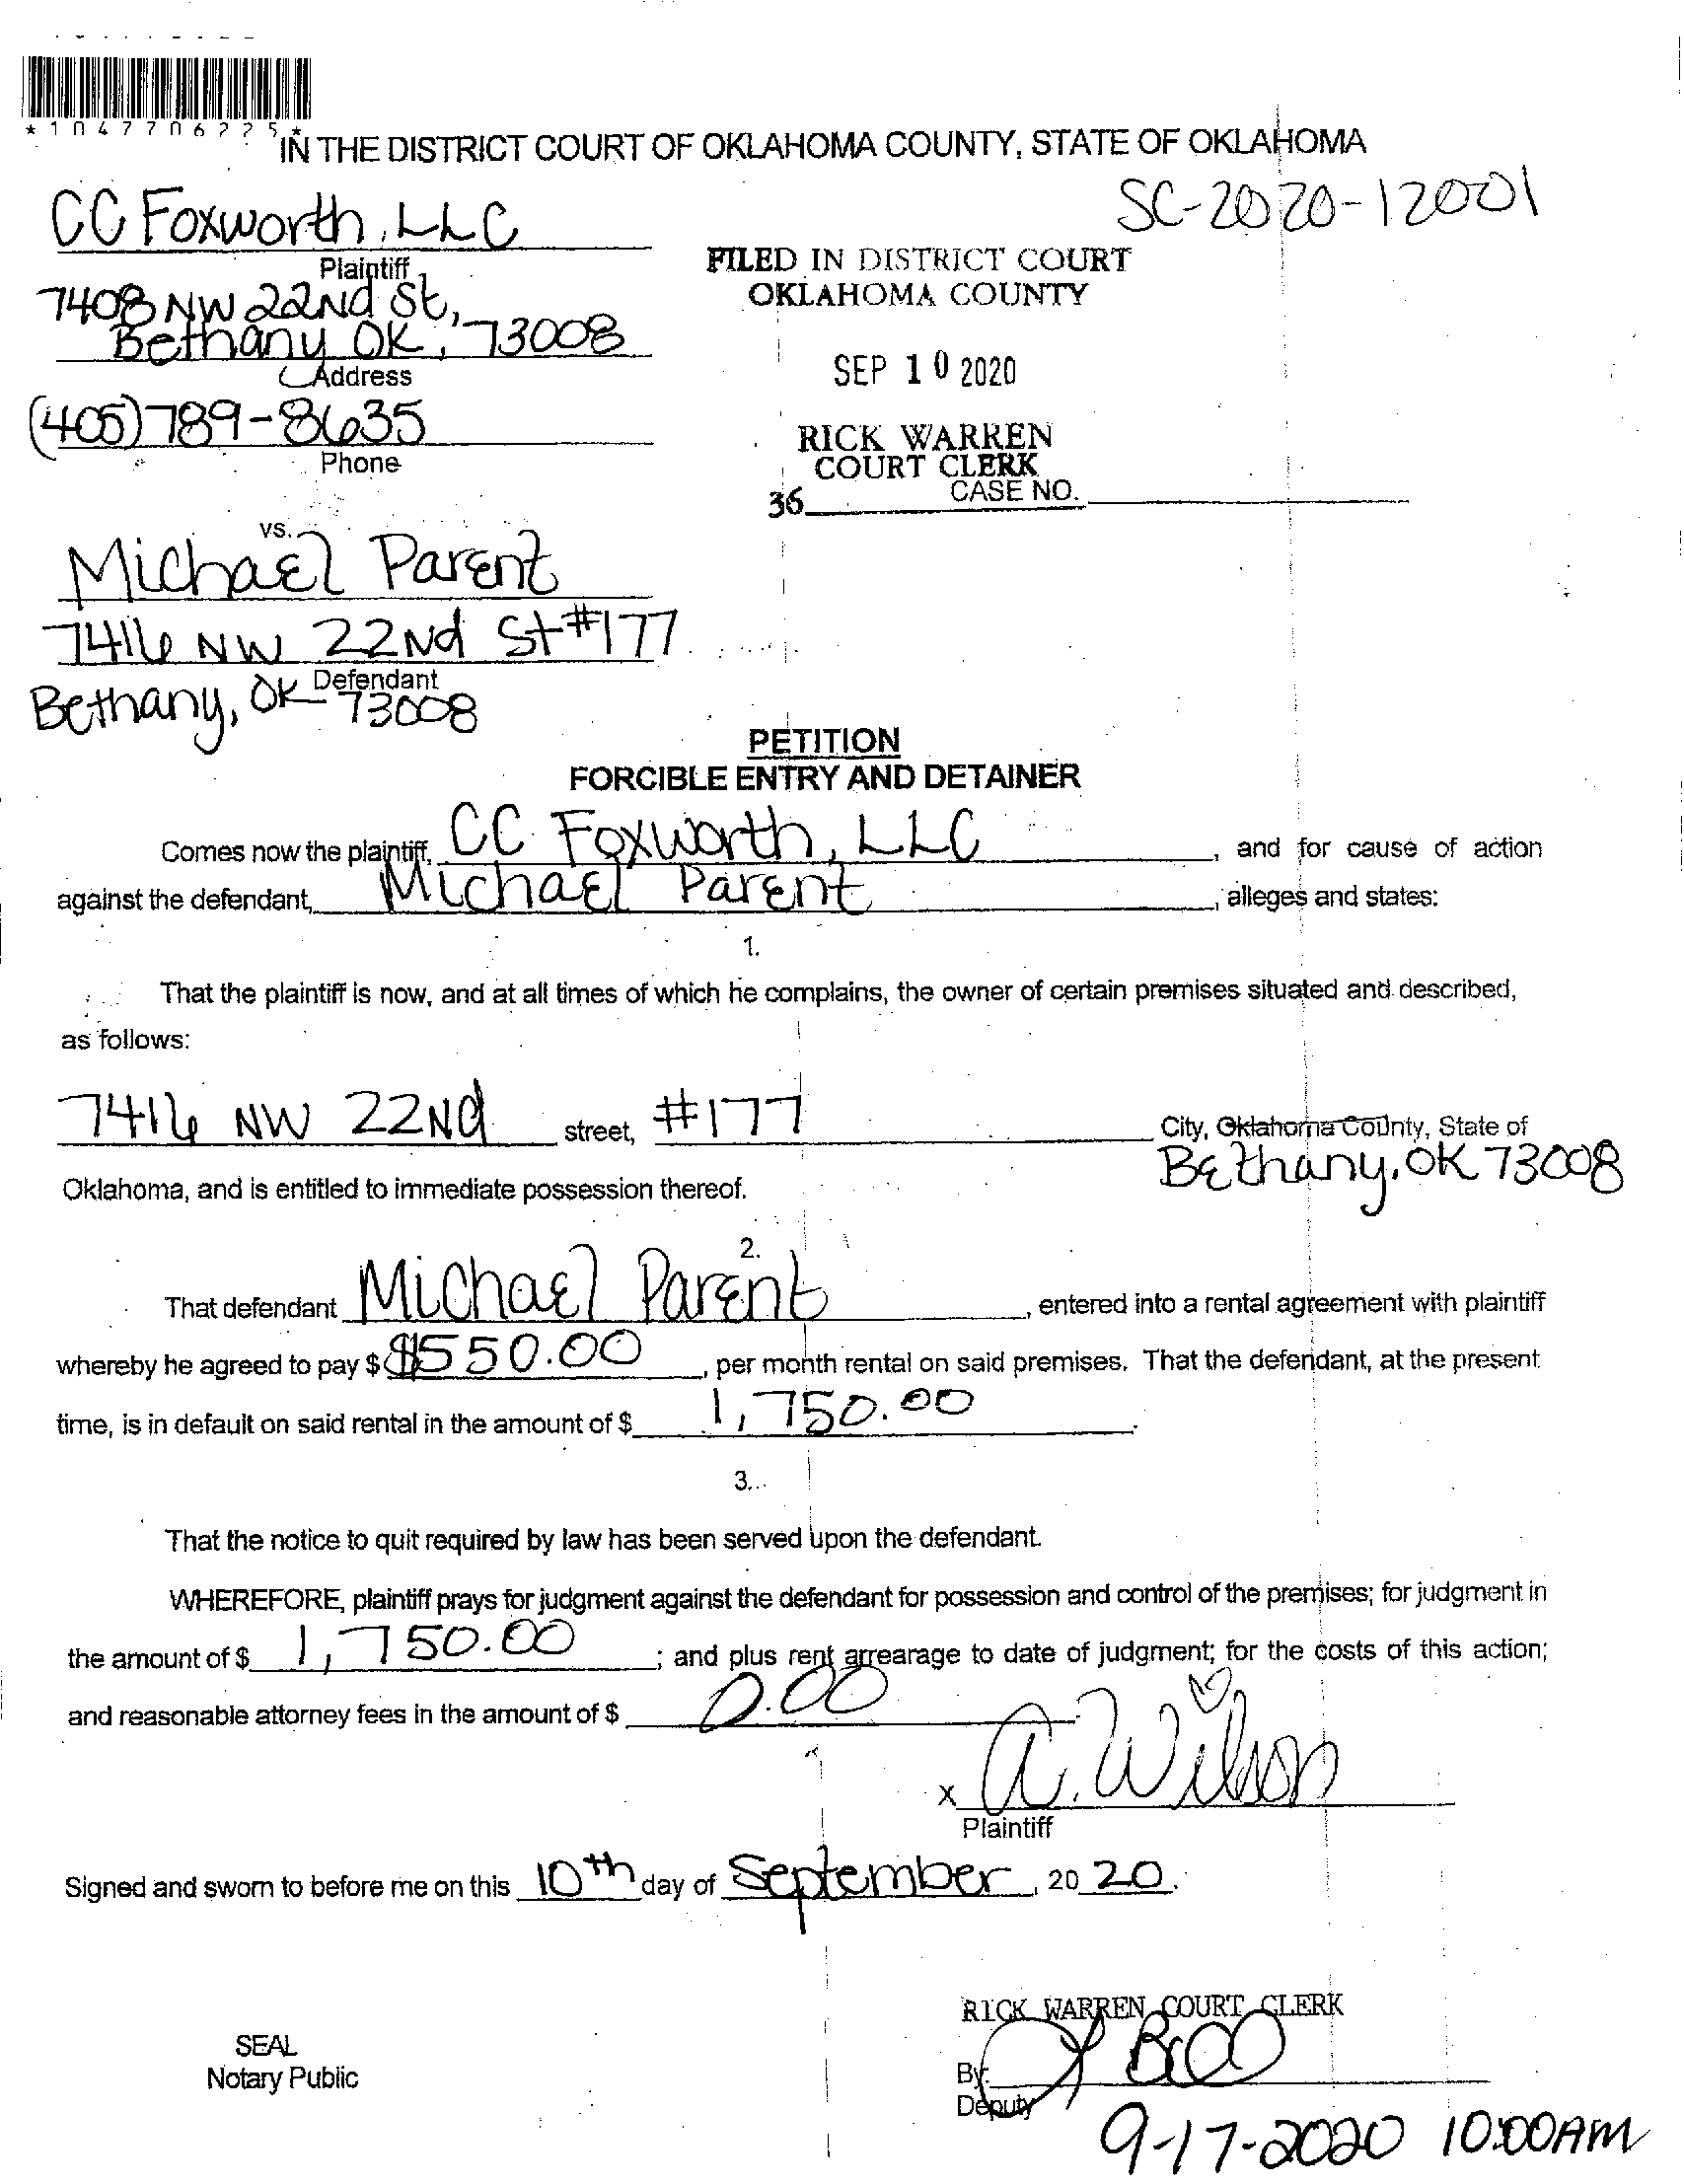 *1047706225*
IN THE DISTRICT COURT OF OKLAHOMA COUNTY, STATE OF OKLAHOMA
SC-2020-12001
CC Foxworth, LLC
Plaintiff
7408 NW 22nd St,
Bethany OK, 73008
Address
(405) 789-8635
Phone
FILED IN DISTRICT COURT
OKLAHOMA COUNTY
SEP 10 2020
RICK WARREN
COURT CLERK
36
CASE NO.
vs.
Michael Parent
7416 NW 22nd St #177
Defendant
Bethany, OK 73008
PETITION
FORCIBLE ENTRY AND DETAINER
Comes now the plaintiff, CC Foxworth, LLC, and for cause of action
against the defendant, Michael Parent, alleges and states:
1.
That the plaintiff is now, and at all times of which he complains, the owner of certain premises situated and described,
as follows:
7416 NW 22nd street, #177 City, Oklahoma County, State of
Bethany, OK 73008
Oklahoma, and is entitled to immediate possession thereof.
2.
That defendant Michael Parent, entered into a rental agreement with plaintiff
whereby he agreed to pay $ $550.00, per month rental on said premises. That the defendant, at the present
time, is in default on said rental in the amount of $ 1,750.00.
3.
That the notice to quit required by law has been served upon the defendant.
WHEREFORE, plaintiff prays for judgment against the defendant for possession and control of the premises; for judgment in
the amount of $ 1,750.00; and plus rent arrearage to date of judgment; for the costs of this action;
and reasonable attorney fees in the amount of $ 0.00
x A. Wilson
Plaintiff
Signed and sworn to before me on this 10th day of September, 2020.
RICK WARREN COURT CLERK
SEAL
Notary Public
By:
Deputy
9-17-2020 10:00AM